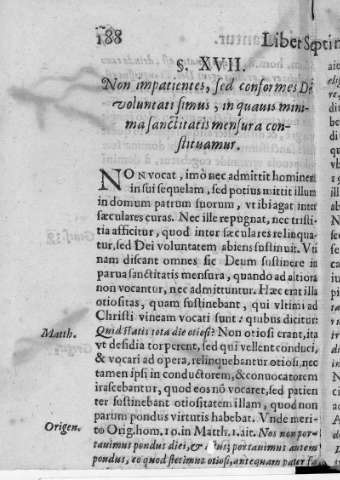 188 Liber Septim
§. XVII.
Non impatientes, sed conformes Dei
voluntati simus; in quauis mini-
ma sanctitatis mensura con-
stituamur.
NON vocat, imò nec admittit hominem
in sui sequelam, sed potius mittit illum
in domum patrum suorum, vt ibi agat inter
sæculares curas. Nec ille repugnat, nec tristi-
tia afficitur, quod inter sæculares relinqua-
tur, sed Dei voluntatem abiens sustinuit. Vti-
nam discant omnes sic Deum sustinere in
parua sanctitatis mensura, quando ad altiora
non vocantur, nec admittuntur. Hæc erat illa
otiositas, quam sustinebant, qui vltimi ad
Christi vineam vocati sunt: quibus dicitur:
Matth. Quid statis tota die otiosi? Non otiosi erant, ita
vt desidia torperent, sed qui vellent conduci,
& vocari ad opera, relinquebantur otiosi, nec
tamen ipsi in conductorem, & conuocatorem
irascebantur, quod eos nō vocaret, sed patien-
ter sustinebant otiositatem illam, quod non
parum pondus virtutis habebat. Vnde meri-
Origen. to Orig. hom. 10. in Matth. 1. ait. Nos non por-
tauimus pondus diei, & portauimus autem
pondus, eo quod stetimus otiosi, antequam pater fa